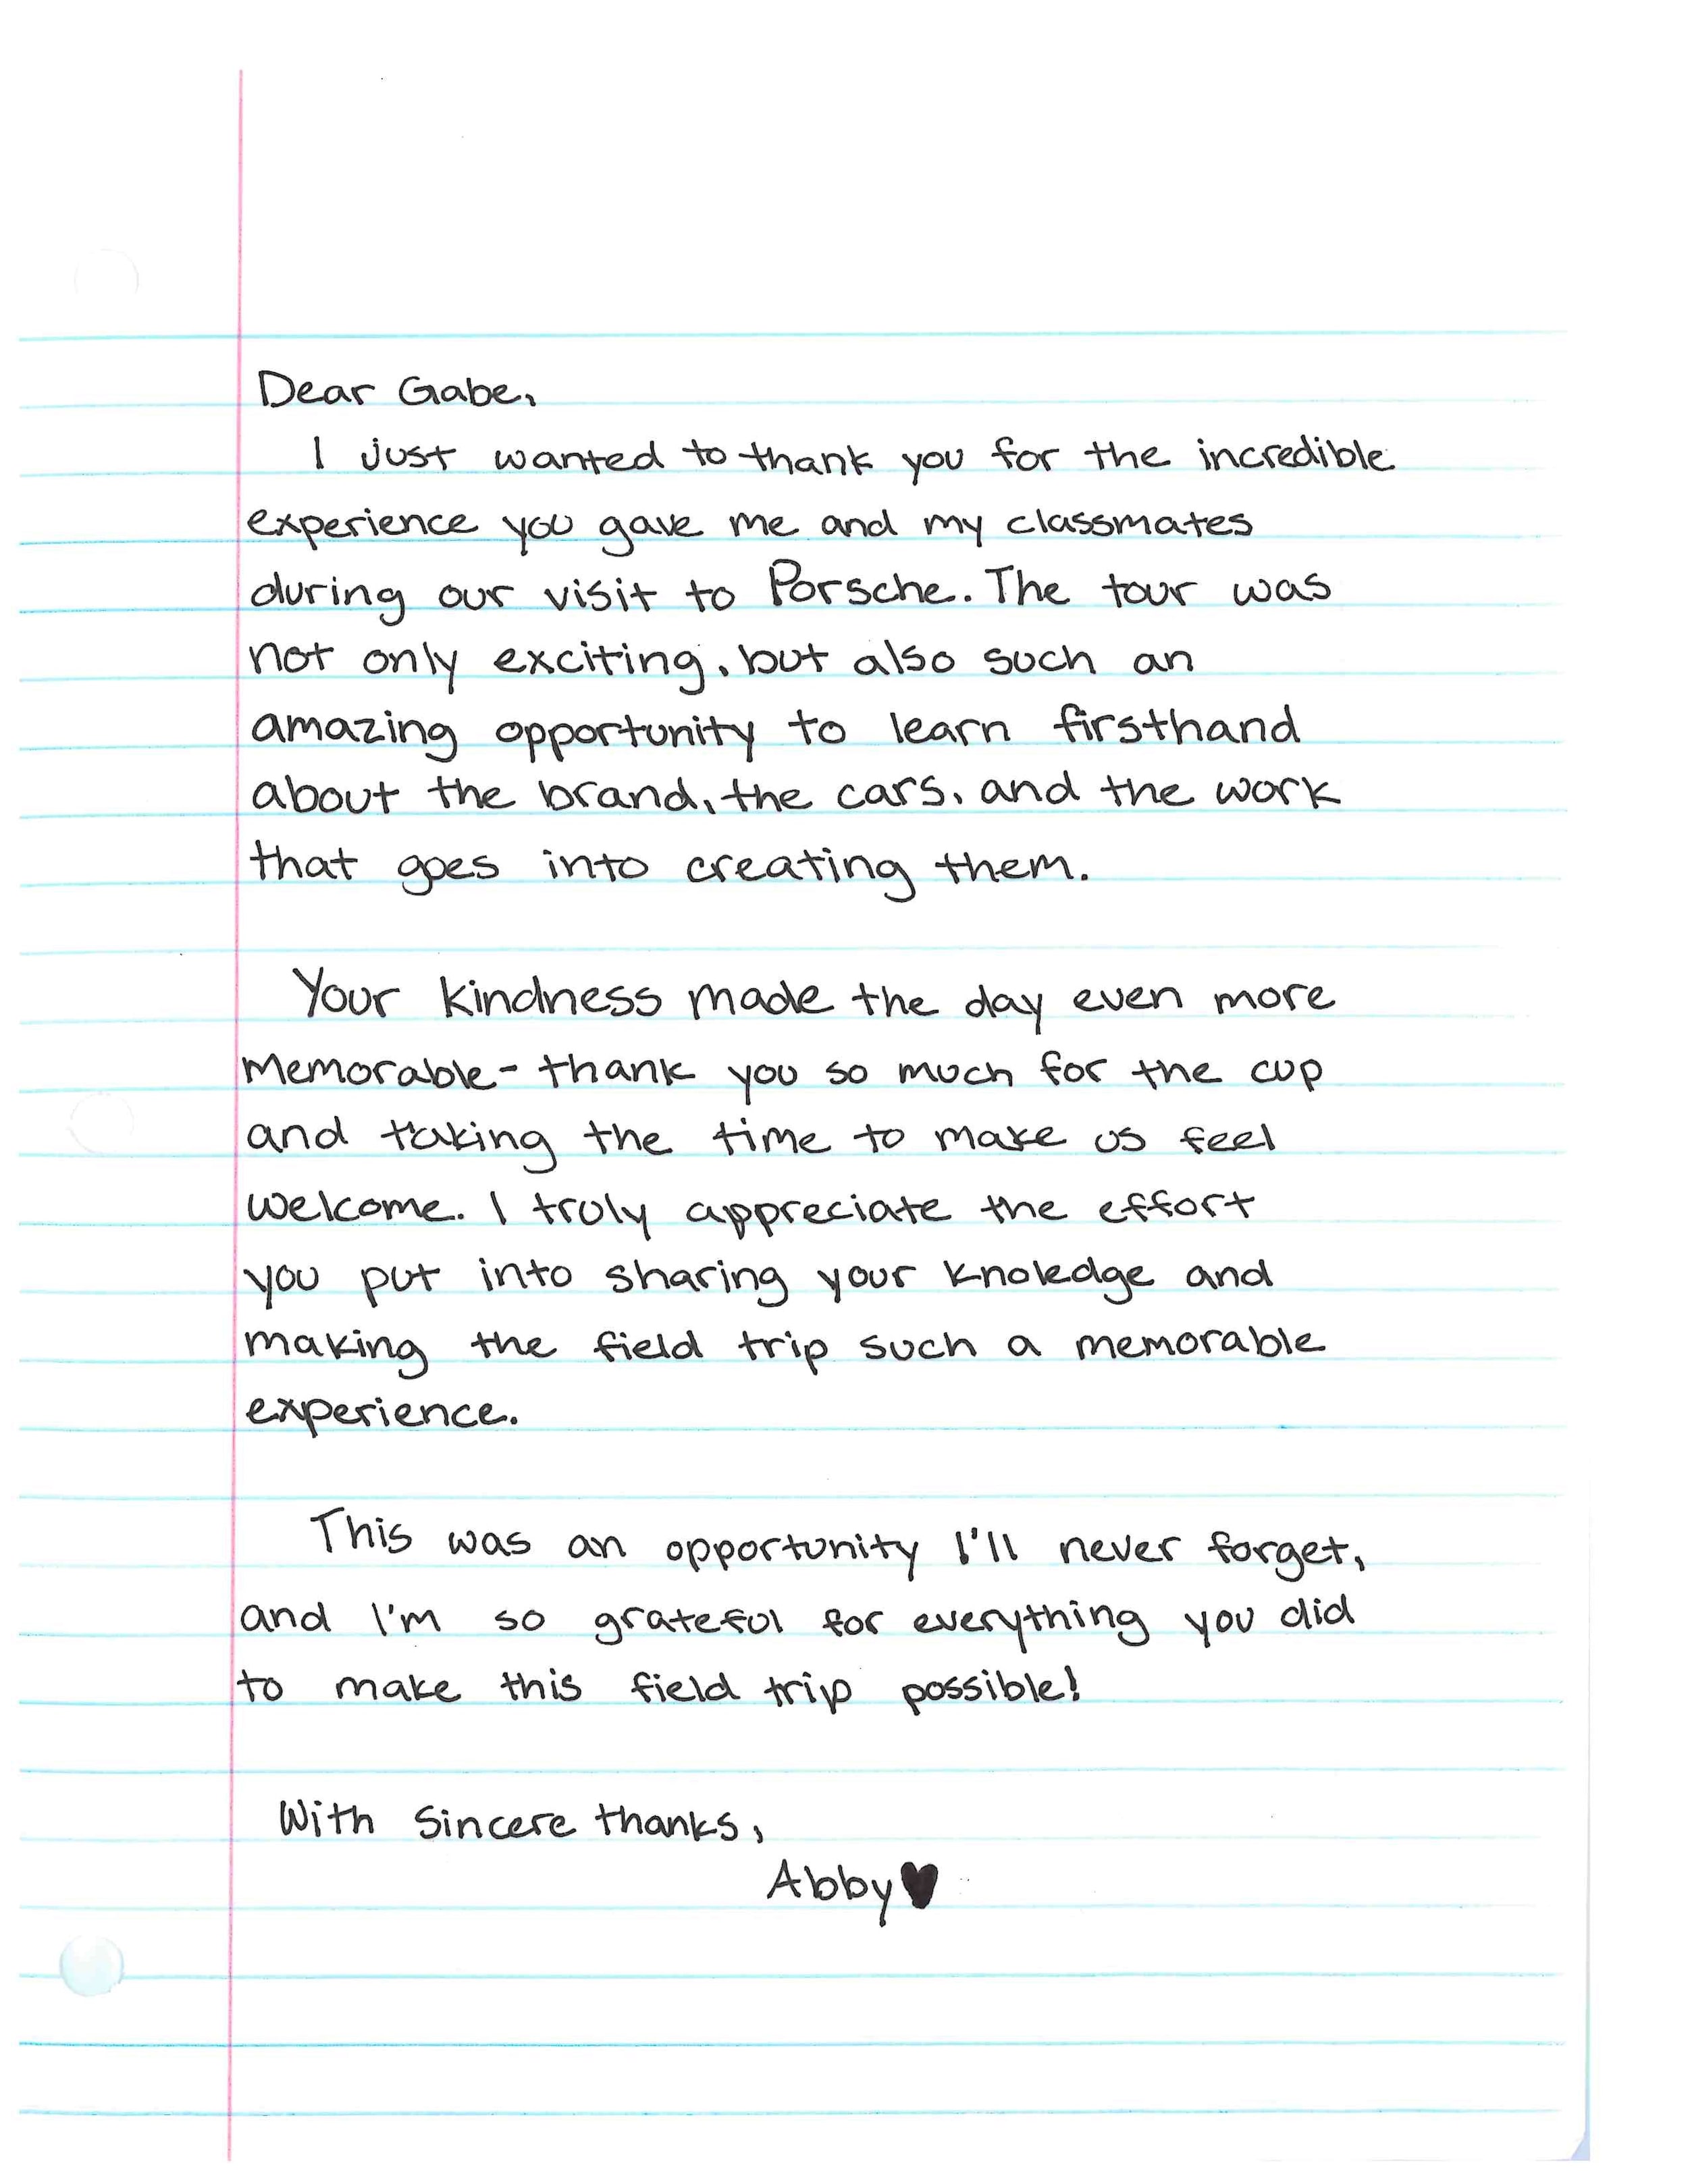 Dear Gabe,
I just wanted to thank you for the incredible
experience you gave me and my classmates
during our visit to Porsche. The tour was
not only exciting, but also such an
amazing opportunity to learn firsthand
about the brand, the cars, and the work
that goes into creating them.
Your kindness made the day even more
memorable- thank you so much for the cup
and taking the time to make us feel
welcome. I truly appreciate the effort
you put into sharing your knoledge and
making the field trip such a memorable
experience.
This was an opportunity I'll never forget,
and I'm so grateful for everything you did
to make this field trip possible!
With sincere thanks,
Abby♥